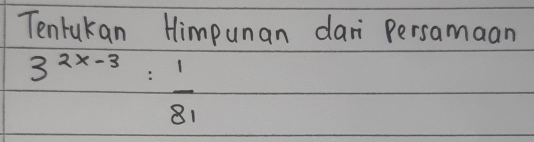 Tentukan Himpunan dari Persamaan
3^{2x-3} : \frac{1}{81}